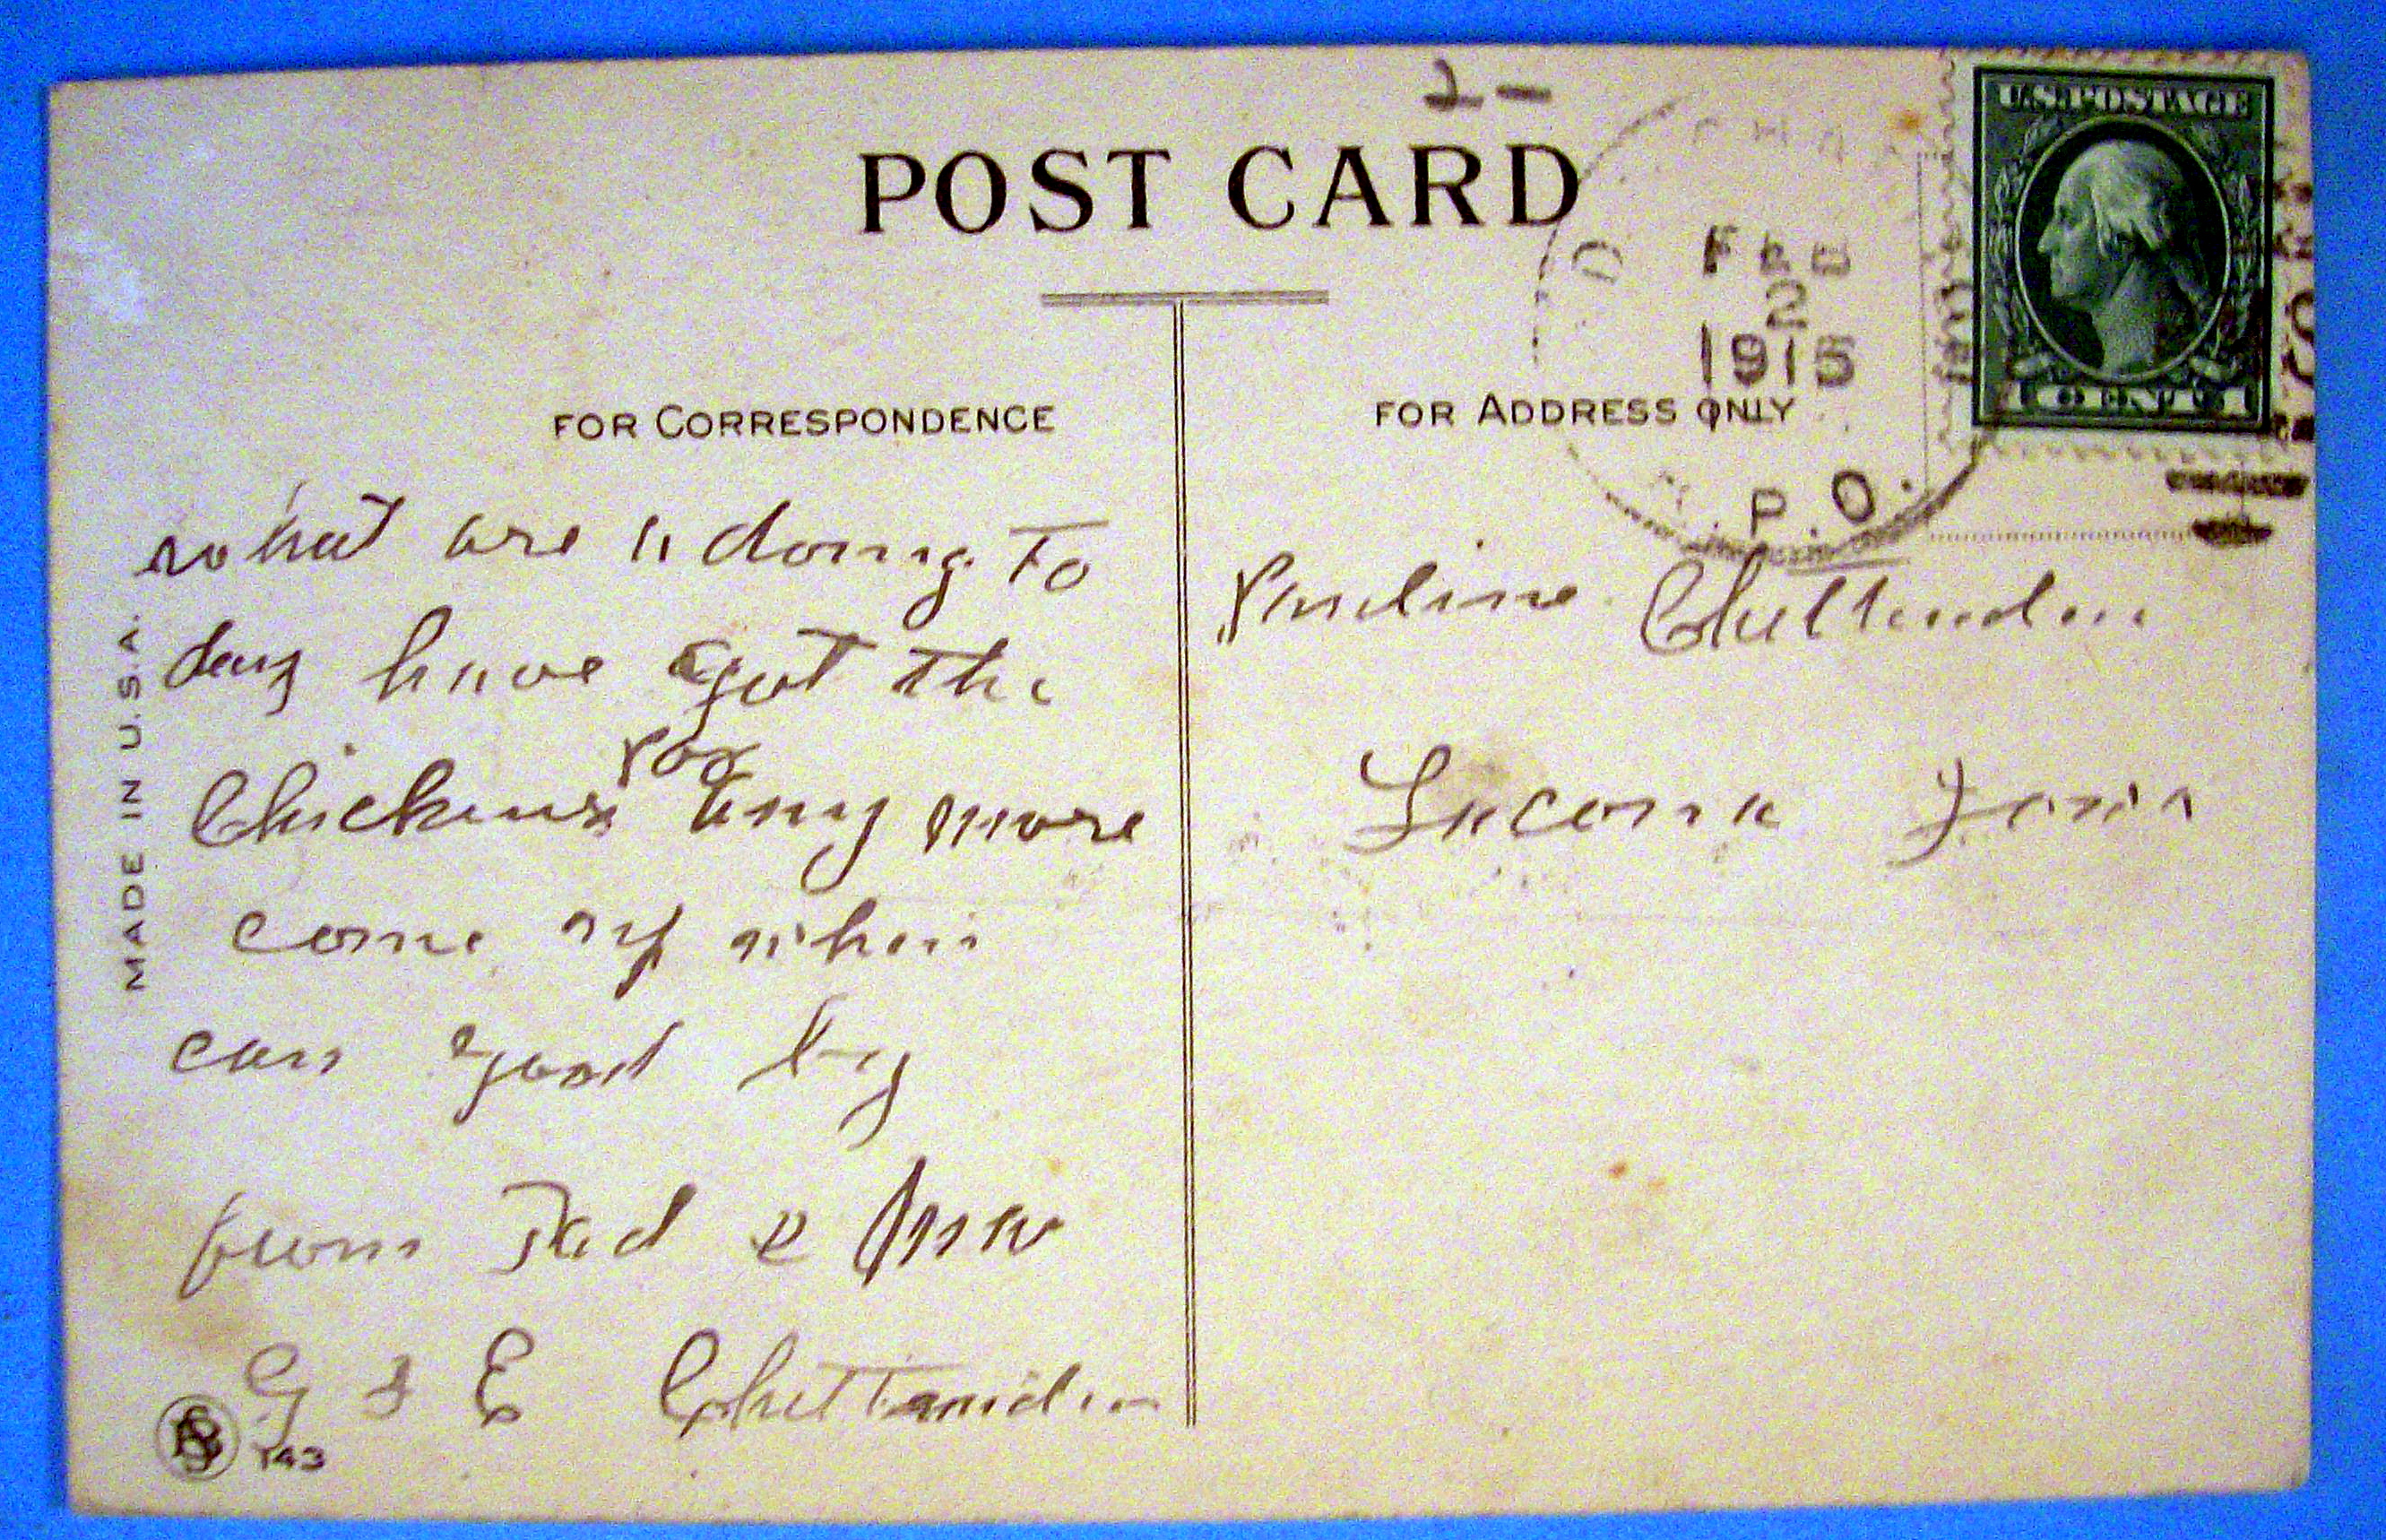 2-
POST CARD
U.S. POSTAGE
1 CENT 1
FEB
2
1915
P.O.
FOR CORRESPONDENCE
FOR ADDRESS ONLY
what are u doing To
day have got The
Chickens Pox any more
come up when
can good by
from Dad & Ma
G & E Chittenden
Pauline Chittenden
Lacona Iowa
MADE IN U.S.A.
143